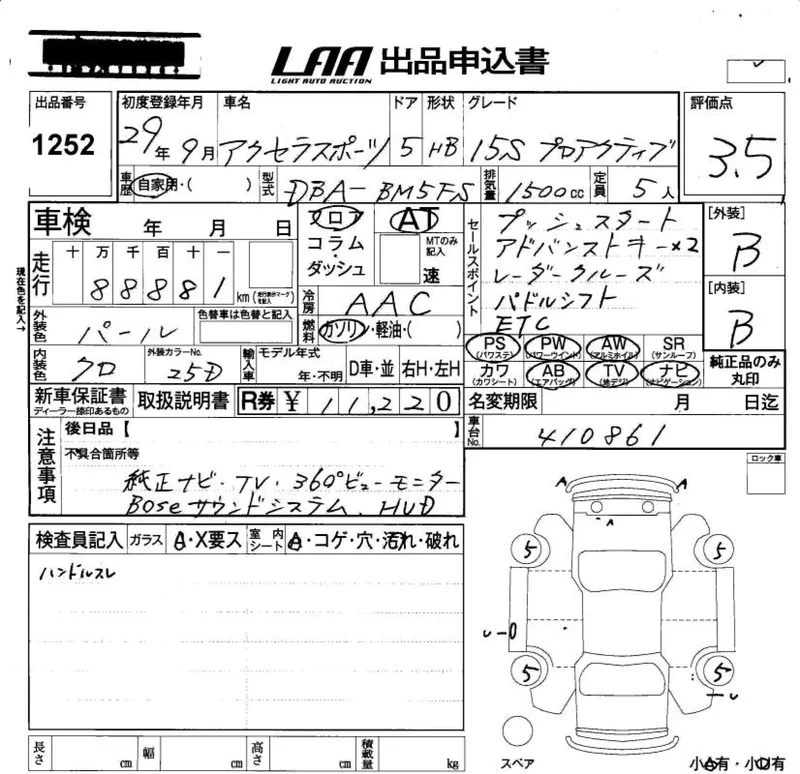 LAA 出品申込書
LIGHT AUTO AUCTION
出品番号
1252
初度登録年月
29年 9月
車名
アクセラスポーツ
ドア
5
形状
HB
グレード
15S プロアクティブ
評価点
3.5
車歴
自家用・( )
型式
DBA-BM5FS
排気量
1500cc
定員
5人
車検 年 月 日
フロア
コラム
・
ダッシュ
AT
MTのみ記入
速
セールスポイント
プッシュスタート
アドバンストキー×2
レーダークルーズ
パドルシフト
ETC
[外装]
B
[内装]
B
現在色を記入→
走行
十 万 千 百 十 一
8 8 8 8 1
km
(走行表示マークを記入)
冷房
AAC
燃料
ガソリン・軽油・( )
外装色
パール
色替車は色替と記入
内装色
クロ
外装カラーNo.
25D
輸入車
モデル年式
年・不明
D車・並
右H・左H
PS (パワステ)
PW (パワーウインド)
AW (アルミホイル)
SR (サンルーフ)
カワ (カワシート)
AB (エアバッグ)
TV (地デジ)
ナビ (ナビゲーション)
純正品のみ丸印
新車保証書
ディーラー捺印あるもの
取扱説明書
R券 ¥ 11,220
名変期限 月 日迄
車台No.
410861
注意事項
後日品【 】
不具合箇所等
純正ナビ・TV・360°ビューモニター
Boseサウンドシステム、HUD
ロック車
検査員記入
ガラス
A・X要ス
室内シート
A・コゲ・穴・汚れ・破れ
ハンドルスレ
A A
A
5 5
U-0
5 5
U
スペア
長さ cm 幅 cm 高さ cm 積載量 kg
小A有・小U有